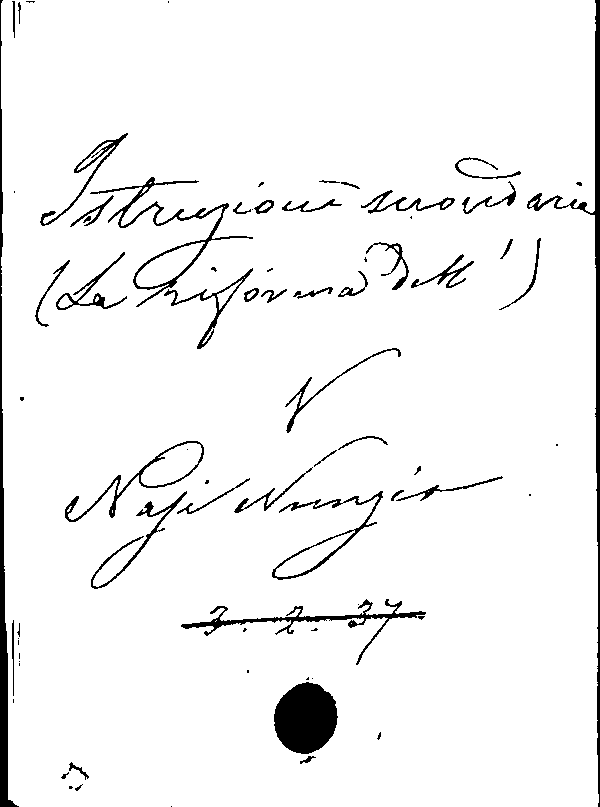 Istruzione secondaria
(La riforma dell')
V
Nasi Nunzio
3. 2. 37.